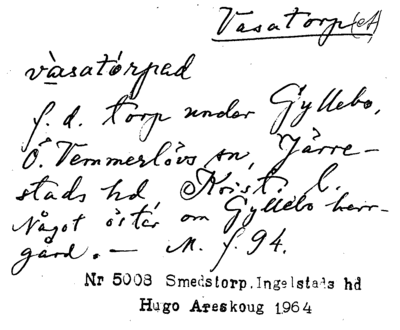 Vasatorp(et)
vàsatórpad
f.d. torp under Gyllebo,
Ö. Vemmerlövs sn, Järre-
stads hd Krist. l.
Något öster om Gyllebo herr-
gård. — M. f. 94.
Nr 5008 Smedstorp, Ingelstads hd
Hugo Areskoug 1964